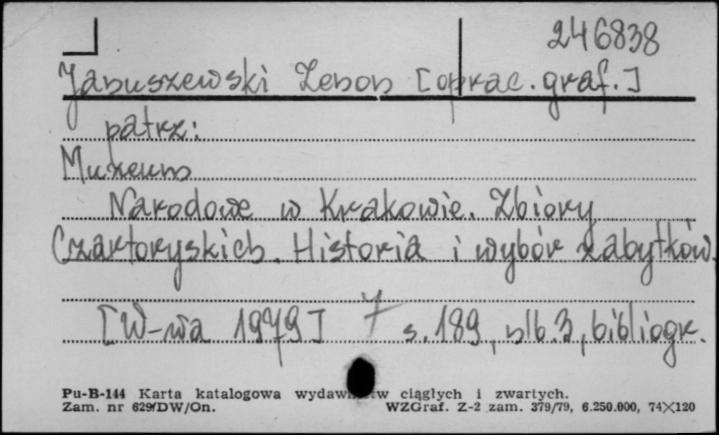 246838
Januszewski Zenon [oprac. graf.]
patrz:
Muzeum
Narodowe w Krakowie. Zbiory
Czartoryskich. Historia i wybór zabytków.
[W-wa 1979] s. 189, nlb. 3, bibliogr.
Pu-B-144 Karta katalogowa wydawnictw ciągłych i zwartych.
Zam. nr 629/DW/On. WZGraf. Z-2 zam. 379/79, 6.250.000, 74×120